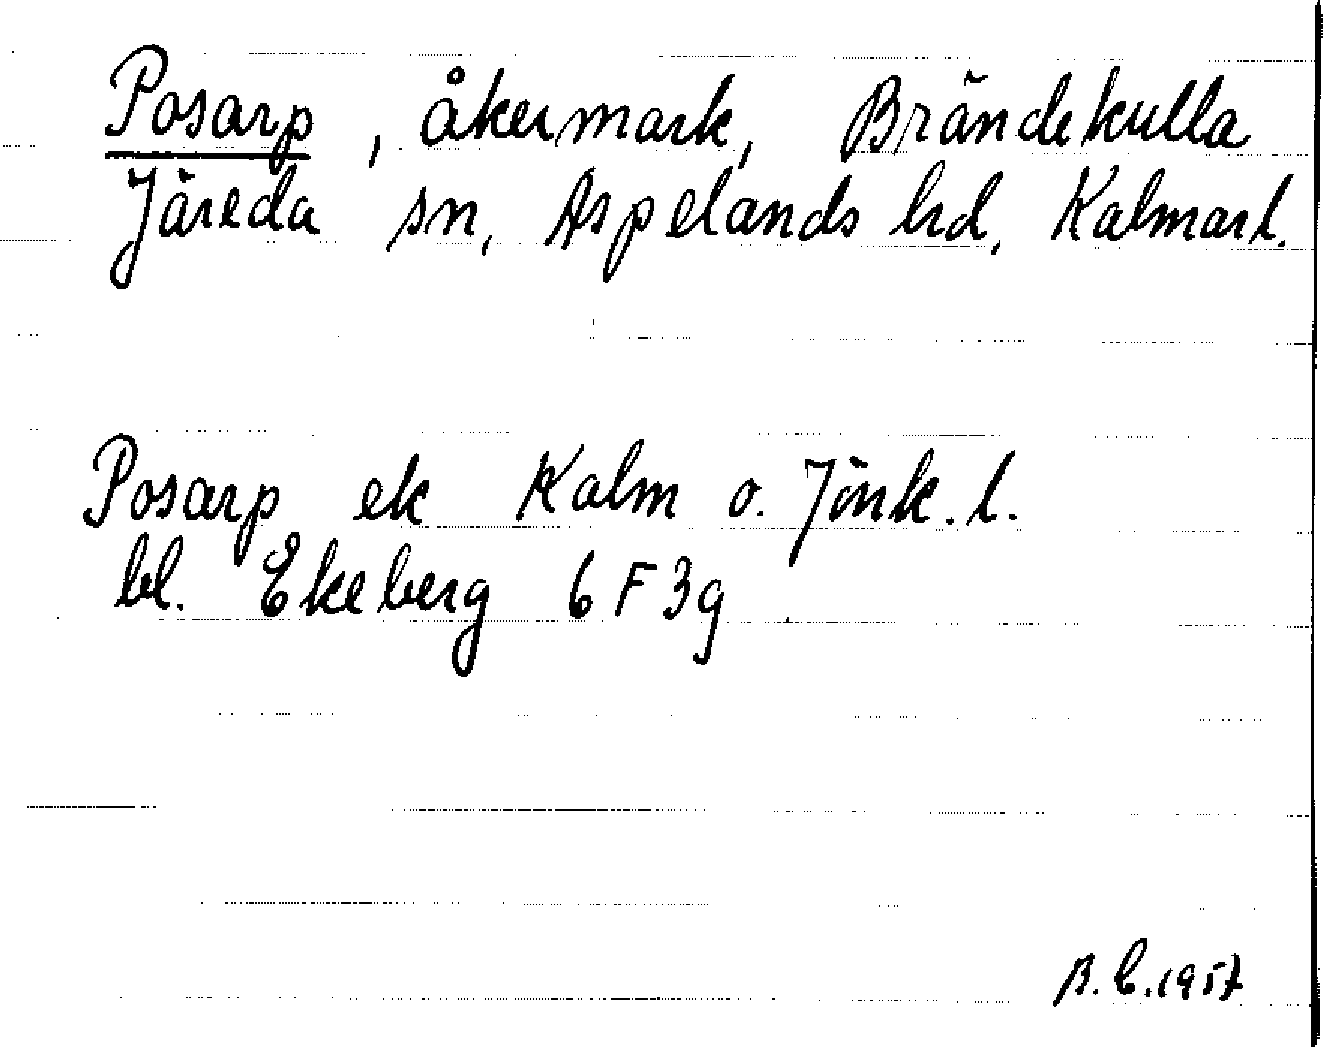 Posarp, åkermark, Brändekulla
Järeda sn, Aspelands hd, Kalmar l.
Posarp ek Kalm o. Jönk. l.
bl. Ekeberg 6 F 3g
B. C. 1957